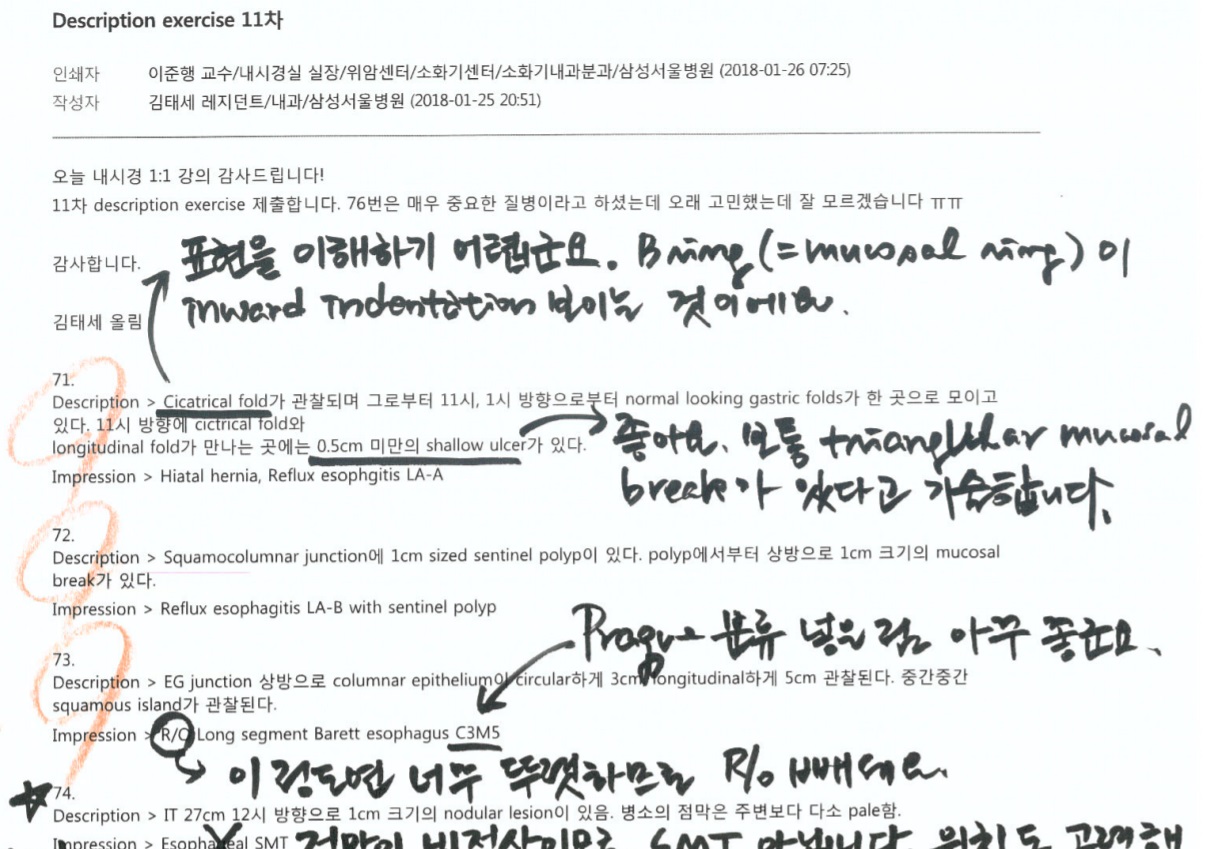 Description exercise 11차
인쇄자 이준행 교수/내시경실 실장/위암센터/소화기센터/소화기내과분과/삼성서울병원 (2018-01-26 07:25)
작성자 김태세 레지던트/내과/삼성서울병원 (2018-01-25 20:51)
오늘 내시경 1:1 강의 감사드립니다!
11차 description exercise 제출합니다. 76번은 매우 중요한 질병이라고 하셨는데 오래 고민했는데 잘 모르겠습니다 ㅠㅠ
감사합니다.
표현을 이해하기 어렵군요. B ring (=mucosal ring) 이
inward indentation 보이는 것이에요.
김태세 올림
71.
Description > Cicatrical fold가 관찰되며 그로부터 11시, 1시 방향으로부터 normal looking gastric folds가 한 곳으로 모이고
있다. 11시 방향에 cictrical fold와
longitudinal fold가 만나는 곳에는 0.5cm 미만의 shallow ulcer가 있다.
좋아요. 보통 triangular mucosal
break가 있다고 기술합니다.
Impression > Hiatal hernia, Reflux esophgitis LA-A
72.
Description > Squamocolumnar junction에 1cm sized sentinel polyp이 있다. polyp에서부터 상방으로 1cm 크기의 mucosal
break가 있다.
Impression > Reflux esophagitis LA-B with sentinel polyp
Prague 분류 넣은 점 아주 좋군요.
73.
Description > EG junction 상방으로 columnar epithelium이 circular하게 3cm longitudinal하게 5cm 관찰된다. 중간중간
squamous island가 관찰된다.
Impression > R/O Long segment Barett esophagus C3M5
이 정도면 너무 뚜렷하므로 R/O 빼세요.
74.
Description > IT 27cm 12시 방향으로 1cm 크기의 nodular lesion이 있음. 병소의 점막은 주변보다 다소 pale함.
Impression > Esophageal SMT
점막이 비정상이므로 SMT 아닙니다. 위치도 고려해